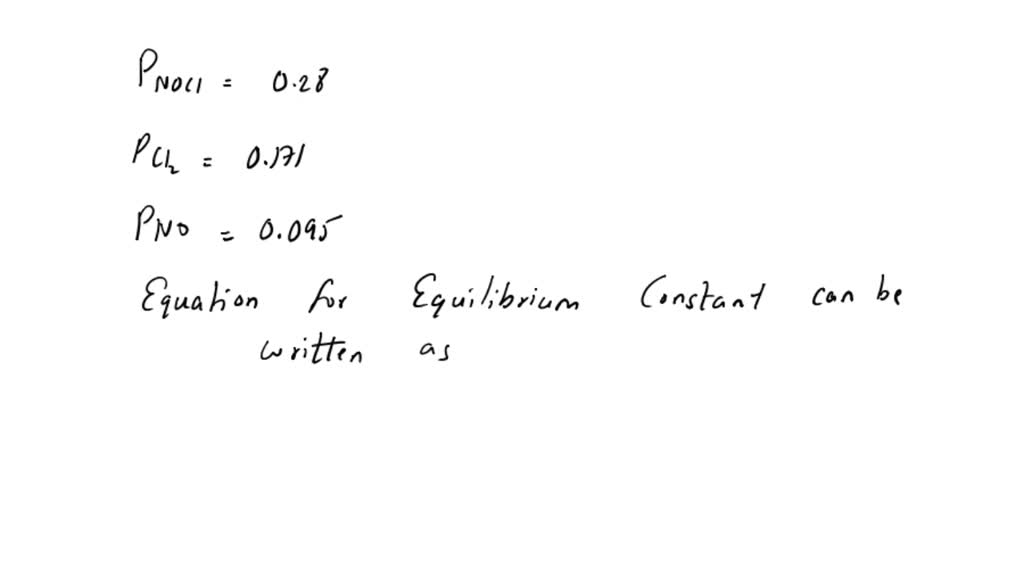 P_NOCl = 0.28
P_Cl₂ = 0.171
P_NO = 0.095
Equation for Equilibrium Constant can be
written as